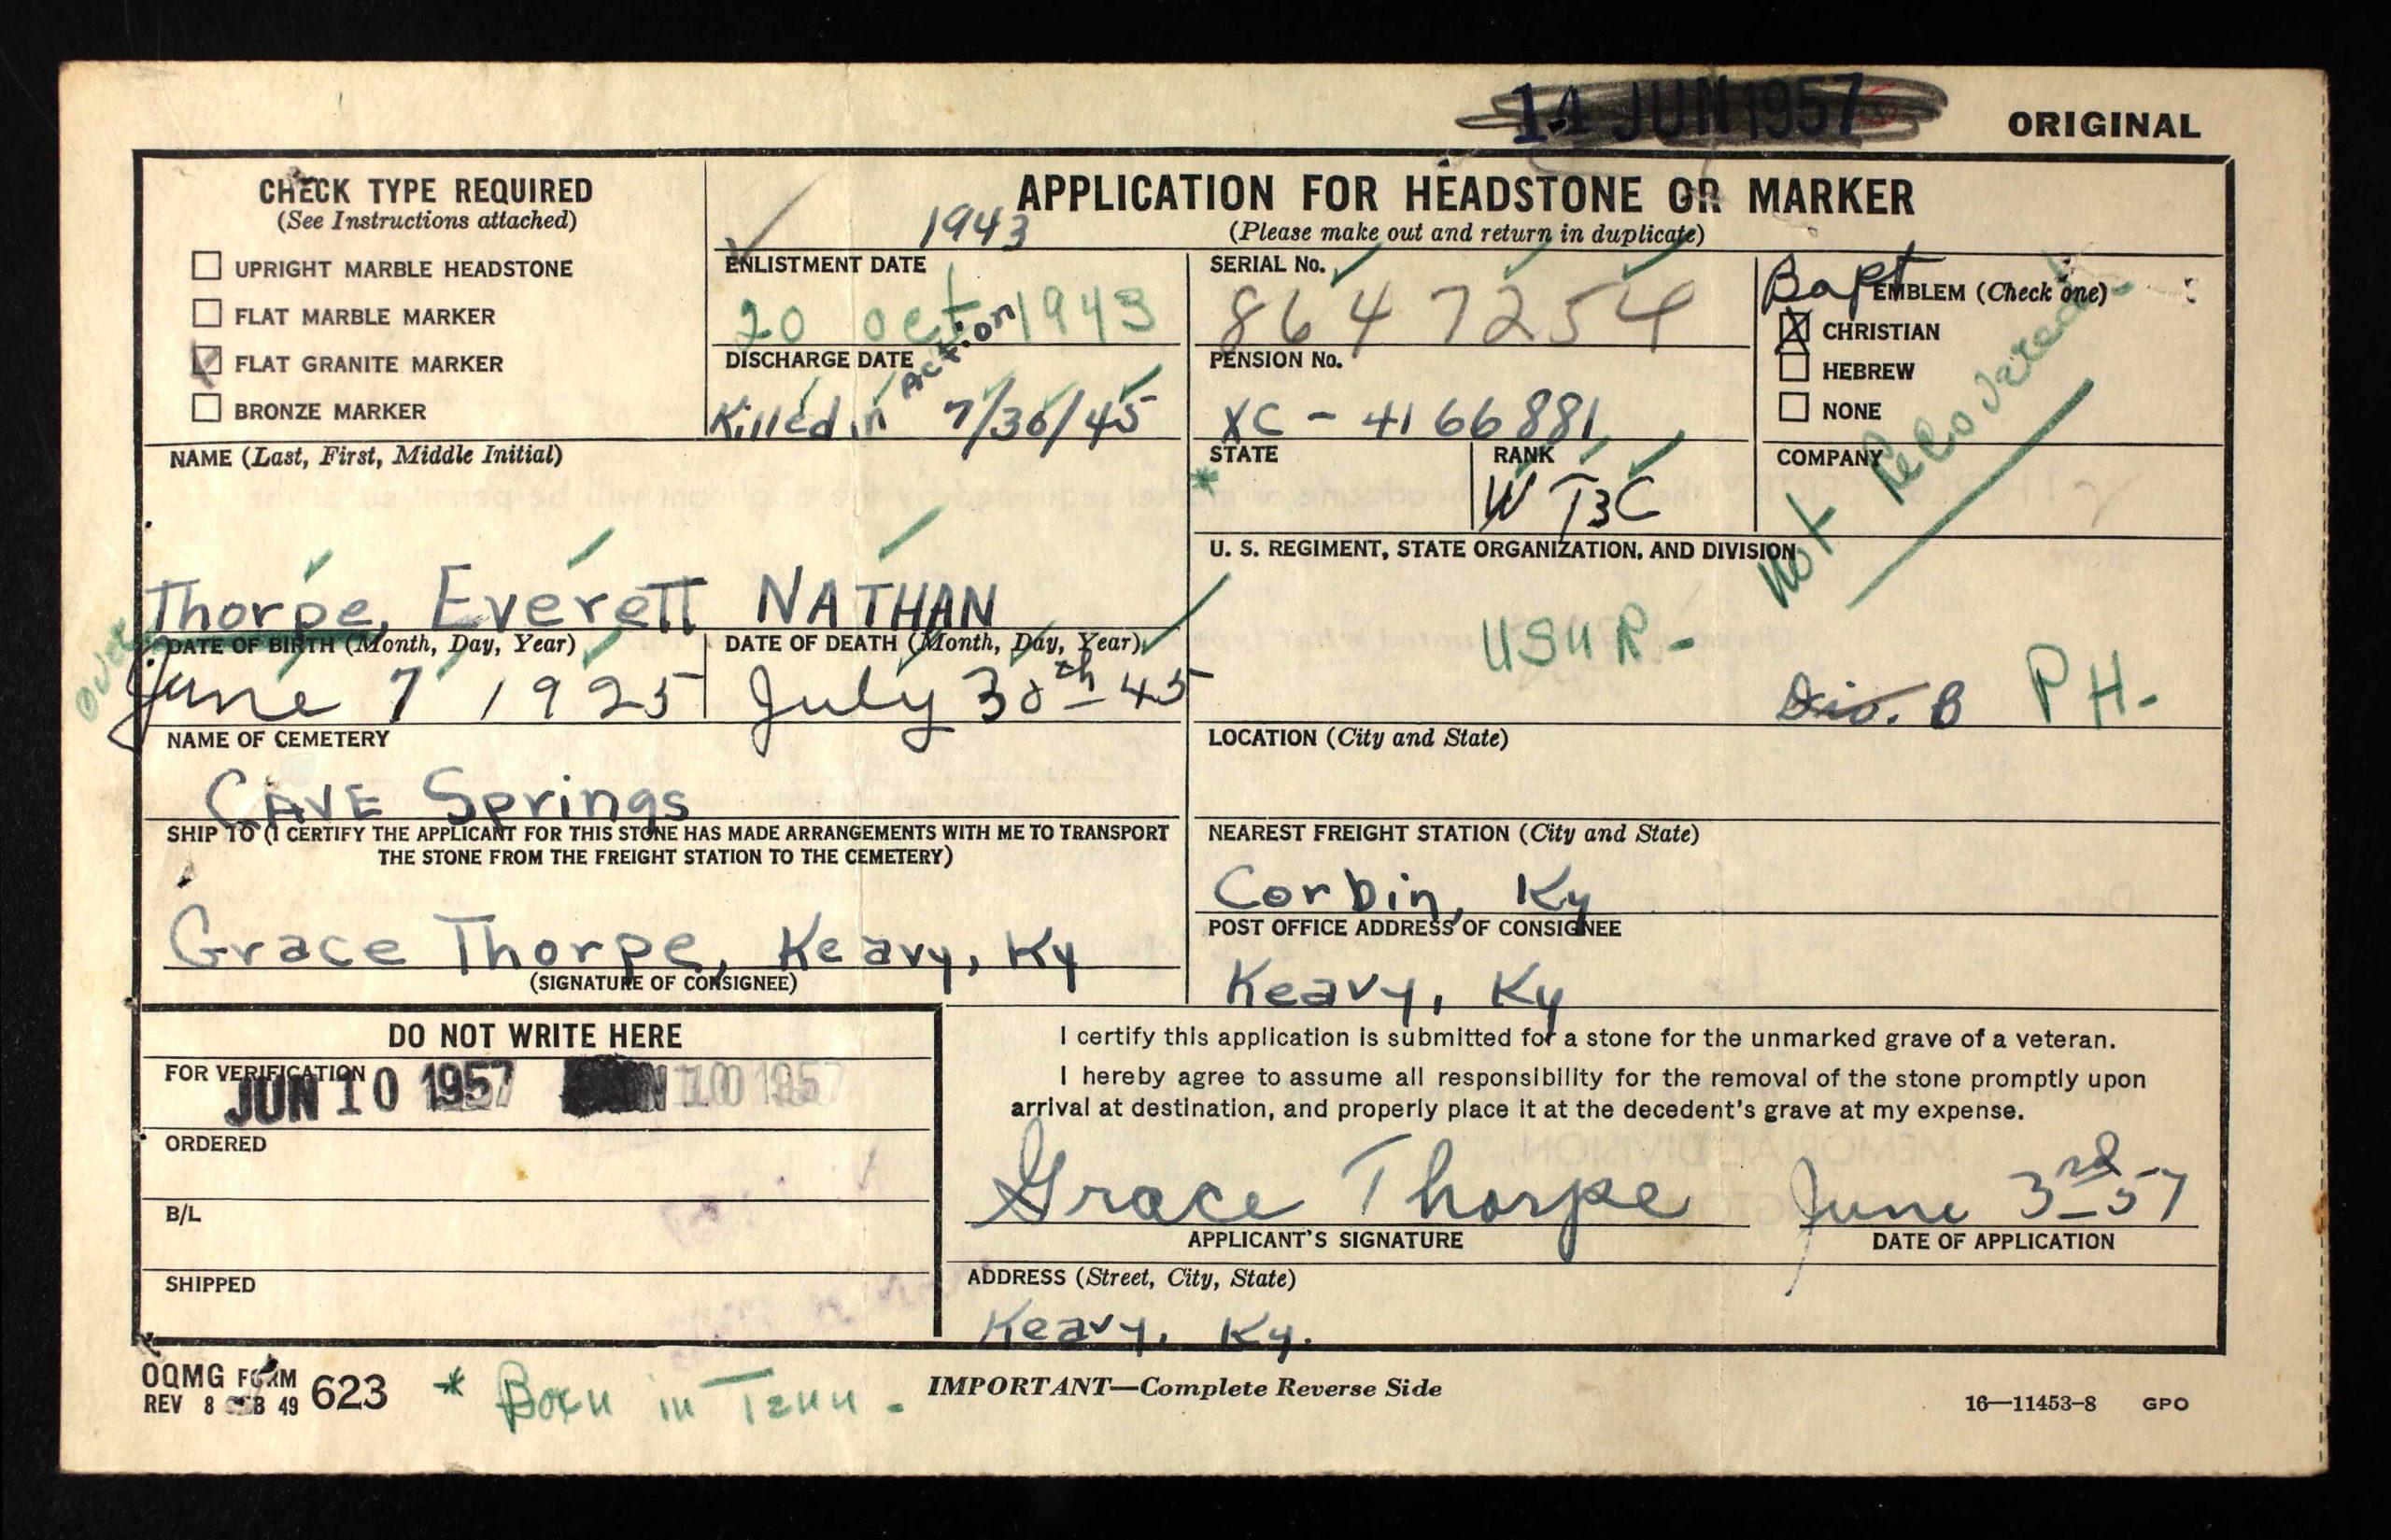 14 JUN 1957
ORIGINAL
CHECK TYPE REQUIRED
(See Instructions attached)
UPRIGHT MARBLE HEADSTONE
FLAT MARBLE MARKER
FLAT GRANITE MARKER
BRONZE MARKER
APPLICATION FOR HEADSTONE OR MARKER
(Please make out and return in duplicate)
1943
ENLISTMENT DATE
20 Oct 1943
DISCHARGE DATE
Killed in Action 7/30/45
SERIAL No.
864 7254
PENSION No.
XC - 4166881
Bapt
EMBLEM (Check one)
CHRISTIAN
HEBREW
NONE
Not Recovered
NAME (Last, First, Middle Initial)
Thorpe, Everett NATHAN
STATE
*
RANK
W T3C
COMPANY
U. S. REGIMENT, STATE ORGANIZATION, AND DIVISION
USNR -
Div. B
PH-
over
DATE OF BIRTH (Month, Day, Year)
June 7 1925
DATE OF DEATH (Month, Day, Year)
July 30th - 45
NAME OF CEMETERY
CAVE Springs
LOCATION (City and State)
SHIP TO (I CERTIFY THE APPLICANT FOR THIS STONE HAS MADE ARRANGEMENTS WITH ME TO TRANSPORT
THE STONE FROM THE FREIGHT STATION TO THE CEMETERY)
Grace Thorpe, Keavy, Ky
(SIGNATURE OF CONSIGNEE)
NEAREST FREIGHT STATION (City and State)
Corbin, Ky
POST OFFICE ADDRESS OF CONSIGNEE
Keavy, Ky
DO NOT WRITE HERE
FOR VERIFICATION
JUN 10 1957
10 1957
ORDERED
B/L
SHIPPED
I certify this application is submitted for a stone for the unmarked grave of a veteran.
I hereby agree to assume all responsibility for the removal of the stone promptly upon
arrival at destination, and properly place it at the decedent's grave at my expense.
Grace Thorpe
June 3rd-57
APPLICANT'S SIGNATURE
DATE OF APPLICATION
ADDRESS (Street, City, State)
Keavy, Ky.
OQMG FORM
REV 8 FEB 49 623
* Born in Tenn -
IMPORTANT—Complete Reverse Side
16—11453-8 GPO